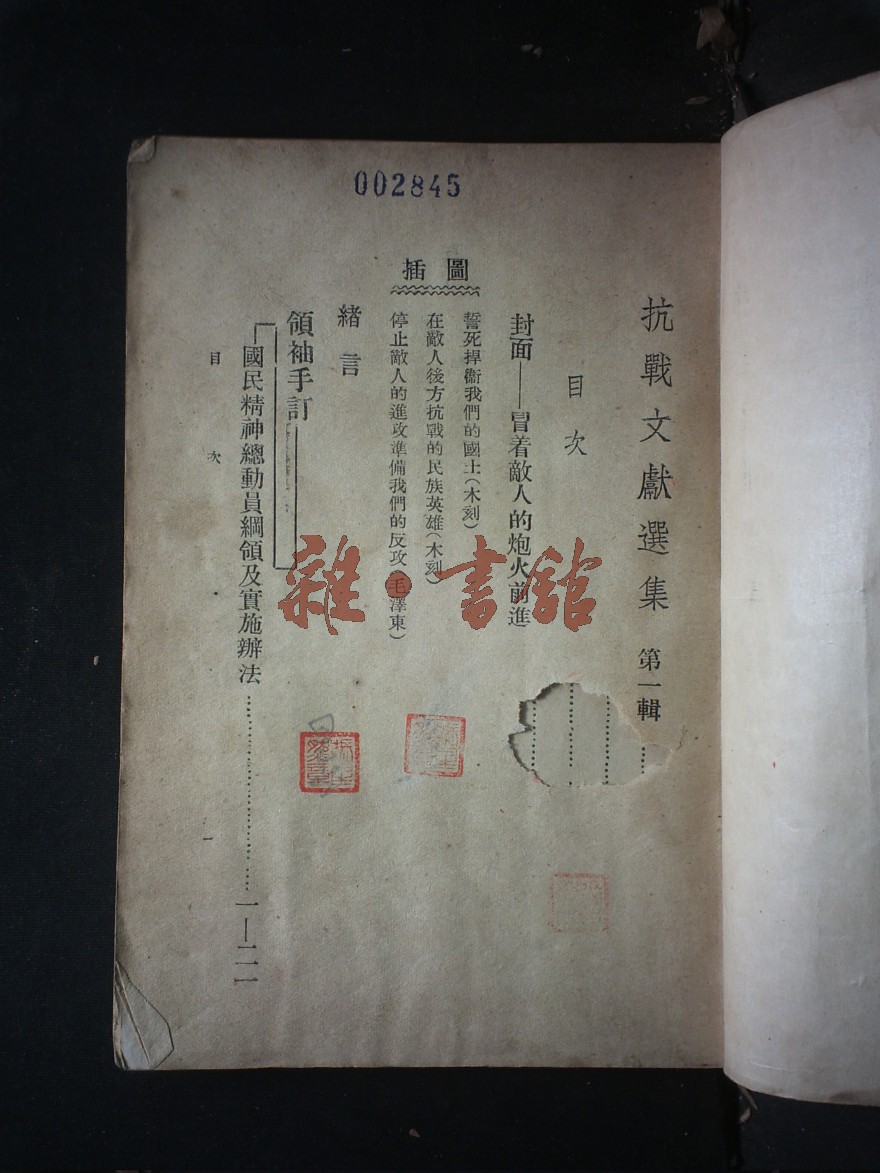 002845
抗戰文獻選集 第一輯
目次
封面——冒着敵人的炮火前進
插圖
誓死捍衞我們的國土(木刻)
在敵人後方抗戰的民族英雄(木刻)
停止敵人的進攻準備我們的反攻(毛澤東)
緒言
領袖手訂
國民精神總動員綱領及實施辦法…………一—二一
目次 一
雜·書館